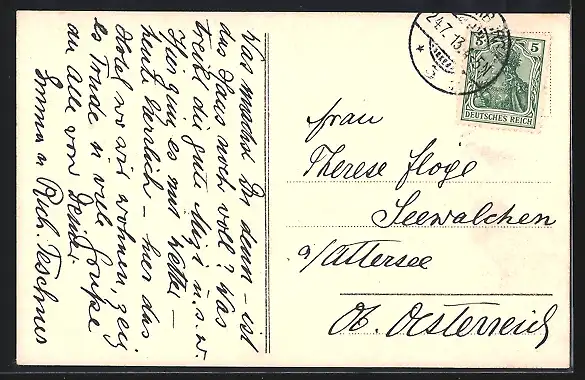 Was machst Du denn – ist
das Haus noch voll? Was
treibt die gute Mizi u.s.w.
Hier ging es mit Wetter –
heute herrlich – hier das
Hotel wo wir wohnen, zeig
es Trude u viele Grüße
an Alle von Deiner
Emma u Rich. Teschner
24.7.13.4-5N
5
DEUTSCHES REICH
Frau
Therese Flöge
Seewalchen
a/Attersee
Ob. Oesterreich